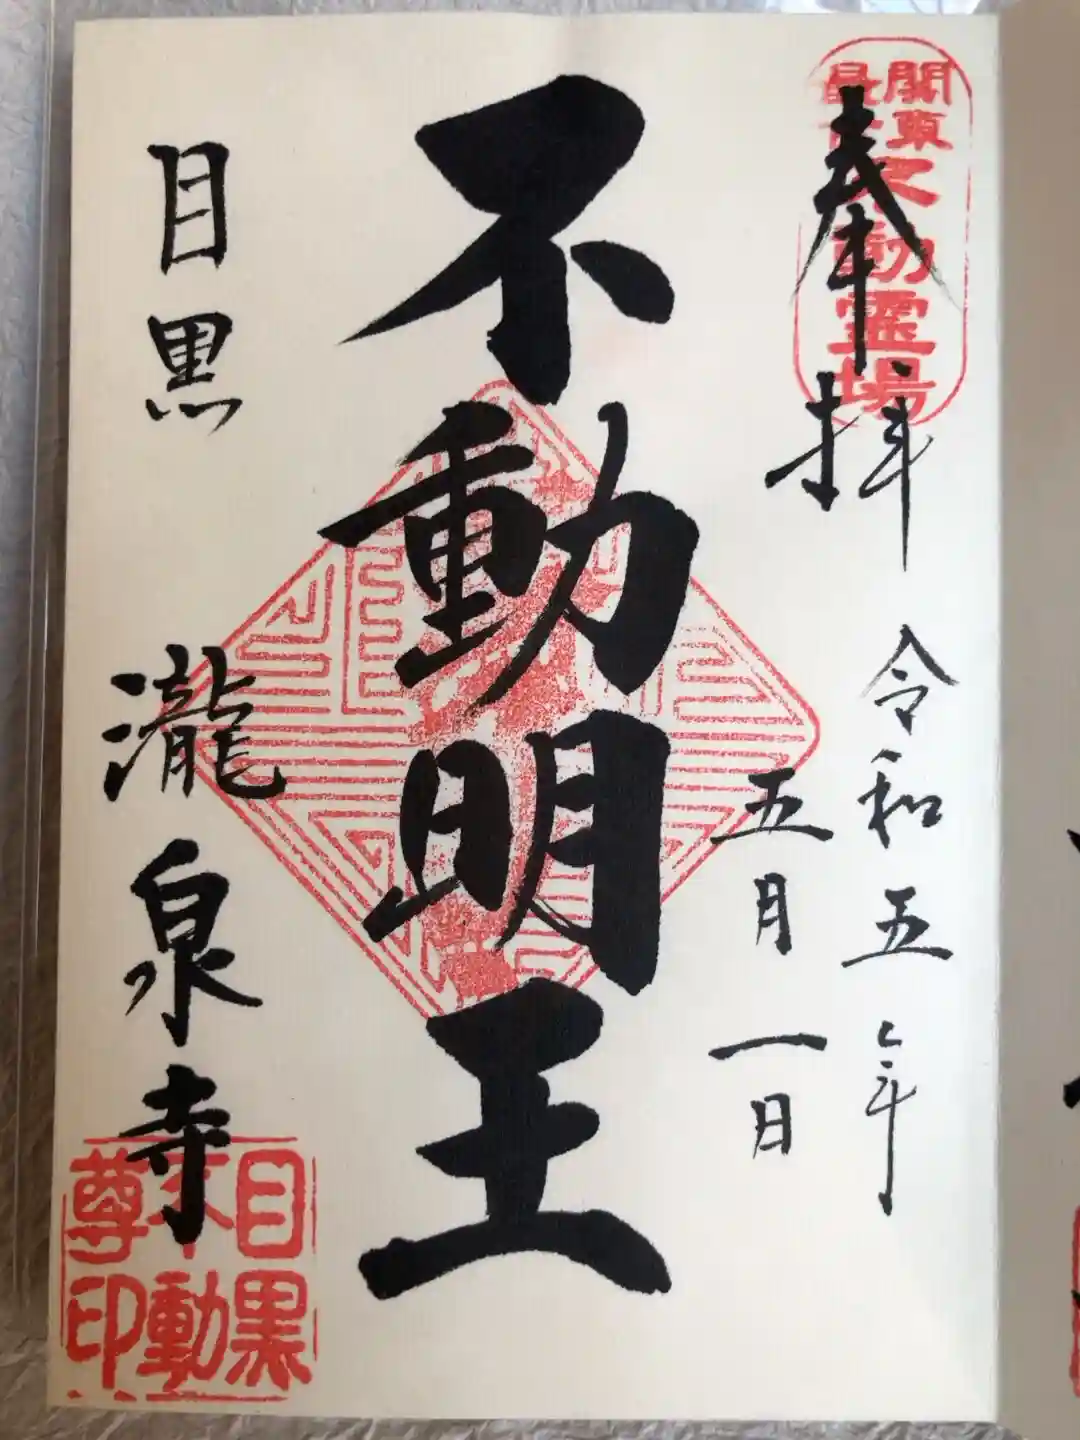 奉拝
令和五年
五月一日
不動明王
目黒
瀧泉寺
関東最古
不動霊場
目黒
不動
尊印